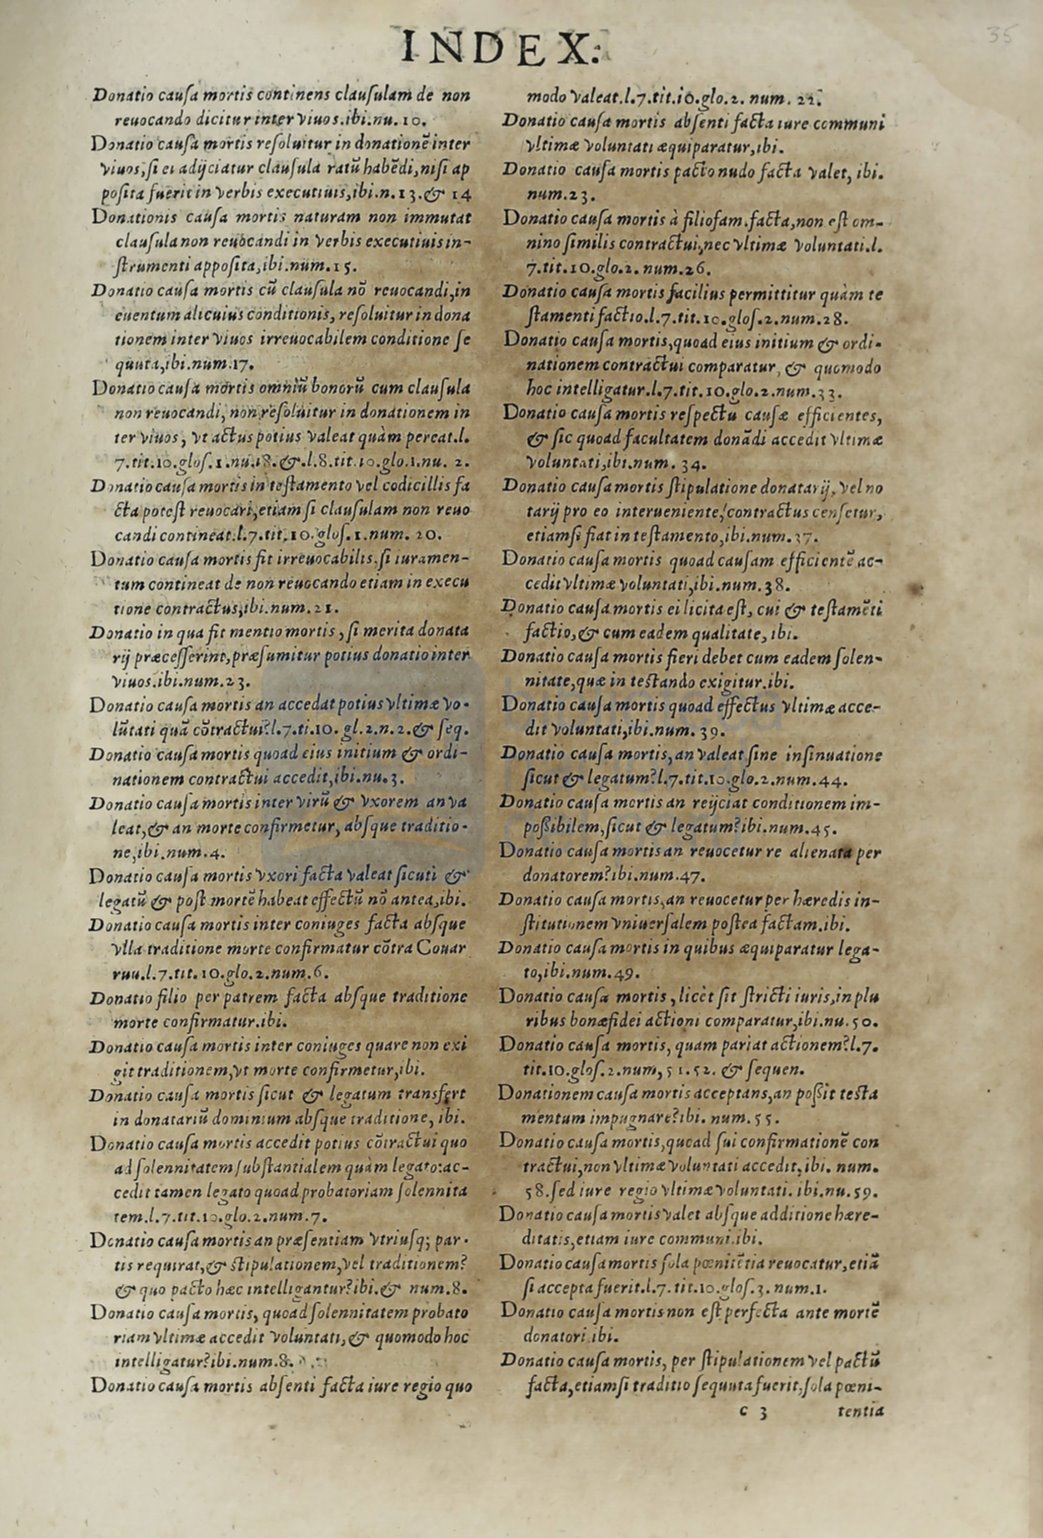 INDEX.
35
Donatio causa mortis continens clausulam de non
reuocando dicitur inter viuos.ibi.nu.10.
Donatio causa mortis resoluitur in donationē inter
viuos,si ei adijciatur clausula ratū habēdi,nisi ap
posita fuerit in verbis executiuis,ibi.n.13.& 14
Donationis causa mortis naturam non immutat
clausula non reuocandi in verbis executiuis in-
strumenti apposita,ibi.num.15.
Donatio causa mortis cū clausula nō reuocandi,in
euentum alicuius conditionis, resoluitur in dona
tionem inter viuos irreuocabilem conditione se
quuta,ibi.num.17.
Donatio causa mortis omniū bonorū cum clausula
non reuocandi, non resoluitur in donationem in
ter viuos, vt actus potius valeat quàm pereat.l.
7.tit.10.glos.1.nu.18.&.l.8.tit.10.glo.1.nu. 2.
Donatio causa mortis in testamento vel codicillis fa
cta potest reuocari,etiam si clausulam non reuo
candi contineat.l.7.tit.10.glos.1.num. 20.
Donatio causa mortis fit irreuocabilis,si iuramen-
tum contineat de non reuocando etiam in execu
tione contractus,ibi.num.21.
Donatio in qua fit mentio mortis, si merita donata
rij præcesserint,præsumitur potius donatio inter
viuos.ibi.num.23.
Donatio causa mortis an accedat potius vltimæ vo-
lūtati quā cōtractui?l.7.ti.10. gl.2.n.2.& seq.
Donatio causa mortis quoad eius initium & ordi-
nationem contractui accedit,ibi.nu.3.
Donatio causa mortis inter virū & vxorem an va
leat,& an morte confirmetur, absque traditio-
ne,ibi.num.4.
Donatio causa mortis vxori facta valeat sicuti &
legatū & post mortē habeat effectū nō antea,ibi.
Donatio causa mortis inter coniuges facta absque
vlla traditione morte confirmatur cōtra Couar
ruu.l.7.tit.10.glo.2.num.6.
Donatio filio per patrem facta absque traditione
morte confirmatur.ibi.
Donatio causa mortis inter coniuges quare non exi
git traditionem,vt morte confirmetur,ibi.
Donatio causa mortis sicut & legatum transfert
in donatariū dominium absque traditione, ibi.
Donatio causa mortis accedit potius cōtractui quo
ad solennitatem substantialem quàm legato:ac-
cedit tamen legato quoad probatoriam solennita
tem.l.7.tit.10.glo.2.num.7.
Donatio causa mortis an præsentiam vtriusq; par-
tis requirat,& stipulationem,vel traditionem?
& quo pacto hæc intelligantur?ibi.& num.8.
Donatio causa mortis, quoad solennitatem probato
riam vltimæ accedit voluntati,& quomodo hoc
intelligatur?ibi.num.8.
Donatio causa mortis absenti facta iure regio quo
modo valeat.l.7.tit.10.glo.2. num. 22.
Donatio causa mortis absenti facta iure communi
vltimæ voluntati æquiparatur,ibi.
Donatio causa mortis pacto nudo facta valet, ibi.
num.23.
Donatio causa mortis à filiofam.facta,non est om-
nino similis contractui,nec vltimæ voluntati.l.
7.tit.10.glo.2.num.26.
Donatio causa mortis facilius permittitur quàm te
stamenti factio.l.7.tit.10.glos.2.num.28.
Donatio causa mortis,quoad eius initium & ordi-
nationem contractui comparatur, & quomodo
hoc intelligatur.l.7.tit.10.glo.2.num.33.
Donatio causa mortis respectu causæ efficientes,
& sic quoad facultatem donādi accedit vltimæ
voluntati,ibi.num. 34.
Donatio causa mortis stipulatione donatarij, vel no
tarij pro eo interueniente,contractus censetur,
etiamsi fiat in testamento,ibi.num.37.
Donatio causa mortis quoad causam efficientē ac-
cedit vltimæ voluntati,ibi.num.38.
Donatio causa mortis ei licita est, cui & testamēti
factio,& cum eadem qualitate, ibi.
Donatio causa mortis fieri debet cum eadem solen-
nitate,quæ in testando exigitur.ibi.
Donatio causa mortis quoad effectus vltimæ acce-
dit voluntati,ibi.num. 39.
Donatio causa mortis,an valeat sine insinuatione
sicut & legatum?l.7.tit.10.glo.2.num.44.
Donatio causa mortis an reijciat conditionem im-
possibilem,sicut & legatum?ibi.num.45.
Donatio causa mortis an reuocetur re alienata per
donatorem?ibi.num.47.
Donatio causa mortis,an reuocetur per hæredis in-
stitutionem vniuersalem postea factam.ibi.
Donatio causa mortis in quibus æquiparatur lega-
to,ibi.num.49.
Donatio causa mortis, licèt sit stricti iuris,in plu
ribus bonæ fidei actioni comparatur,ibi.nu.50.
Donatio causa mortis, quam pariat actionem?l.7.
tit.10.glos.2.num,51.52. & sequen.
Donationem causa mortis acceptans,an possit testa
mentum impugnare?ibi. num.55.
Donatio causa mortis,quoad sui confirmationē con
tractui,non vltimæ voluntati accedit,ibi. num.
58.sed iure regio vltimæ voluntati. ibi.nu.59.
Donatio causa mortis valet absque additione hære-
ditatis,etiam iure communi.ibi.
Donatio causa mortis sola pœnitētia reuocatur,etiā
si accepta fuerit.l.7.tit.10.glos.3.num.1.
Donatio causa mortis non est perfecta ante mortē
donatori ibi.
Donatio causa mortis, per stipulationem vel pactū
facta,etiamsi traditio sequuta fuerit,sola pœni-
c 3 tentia